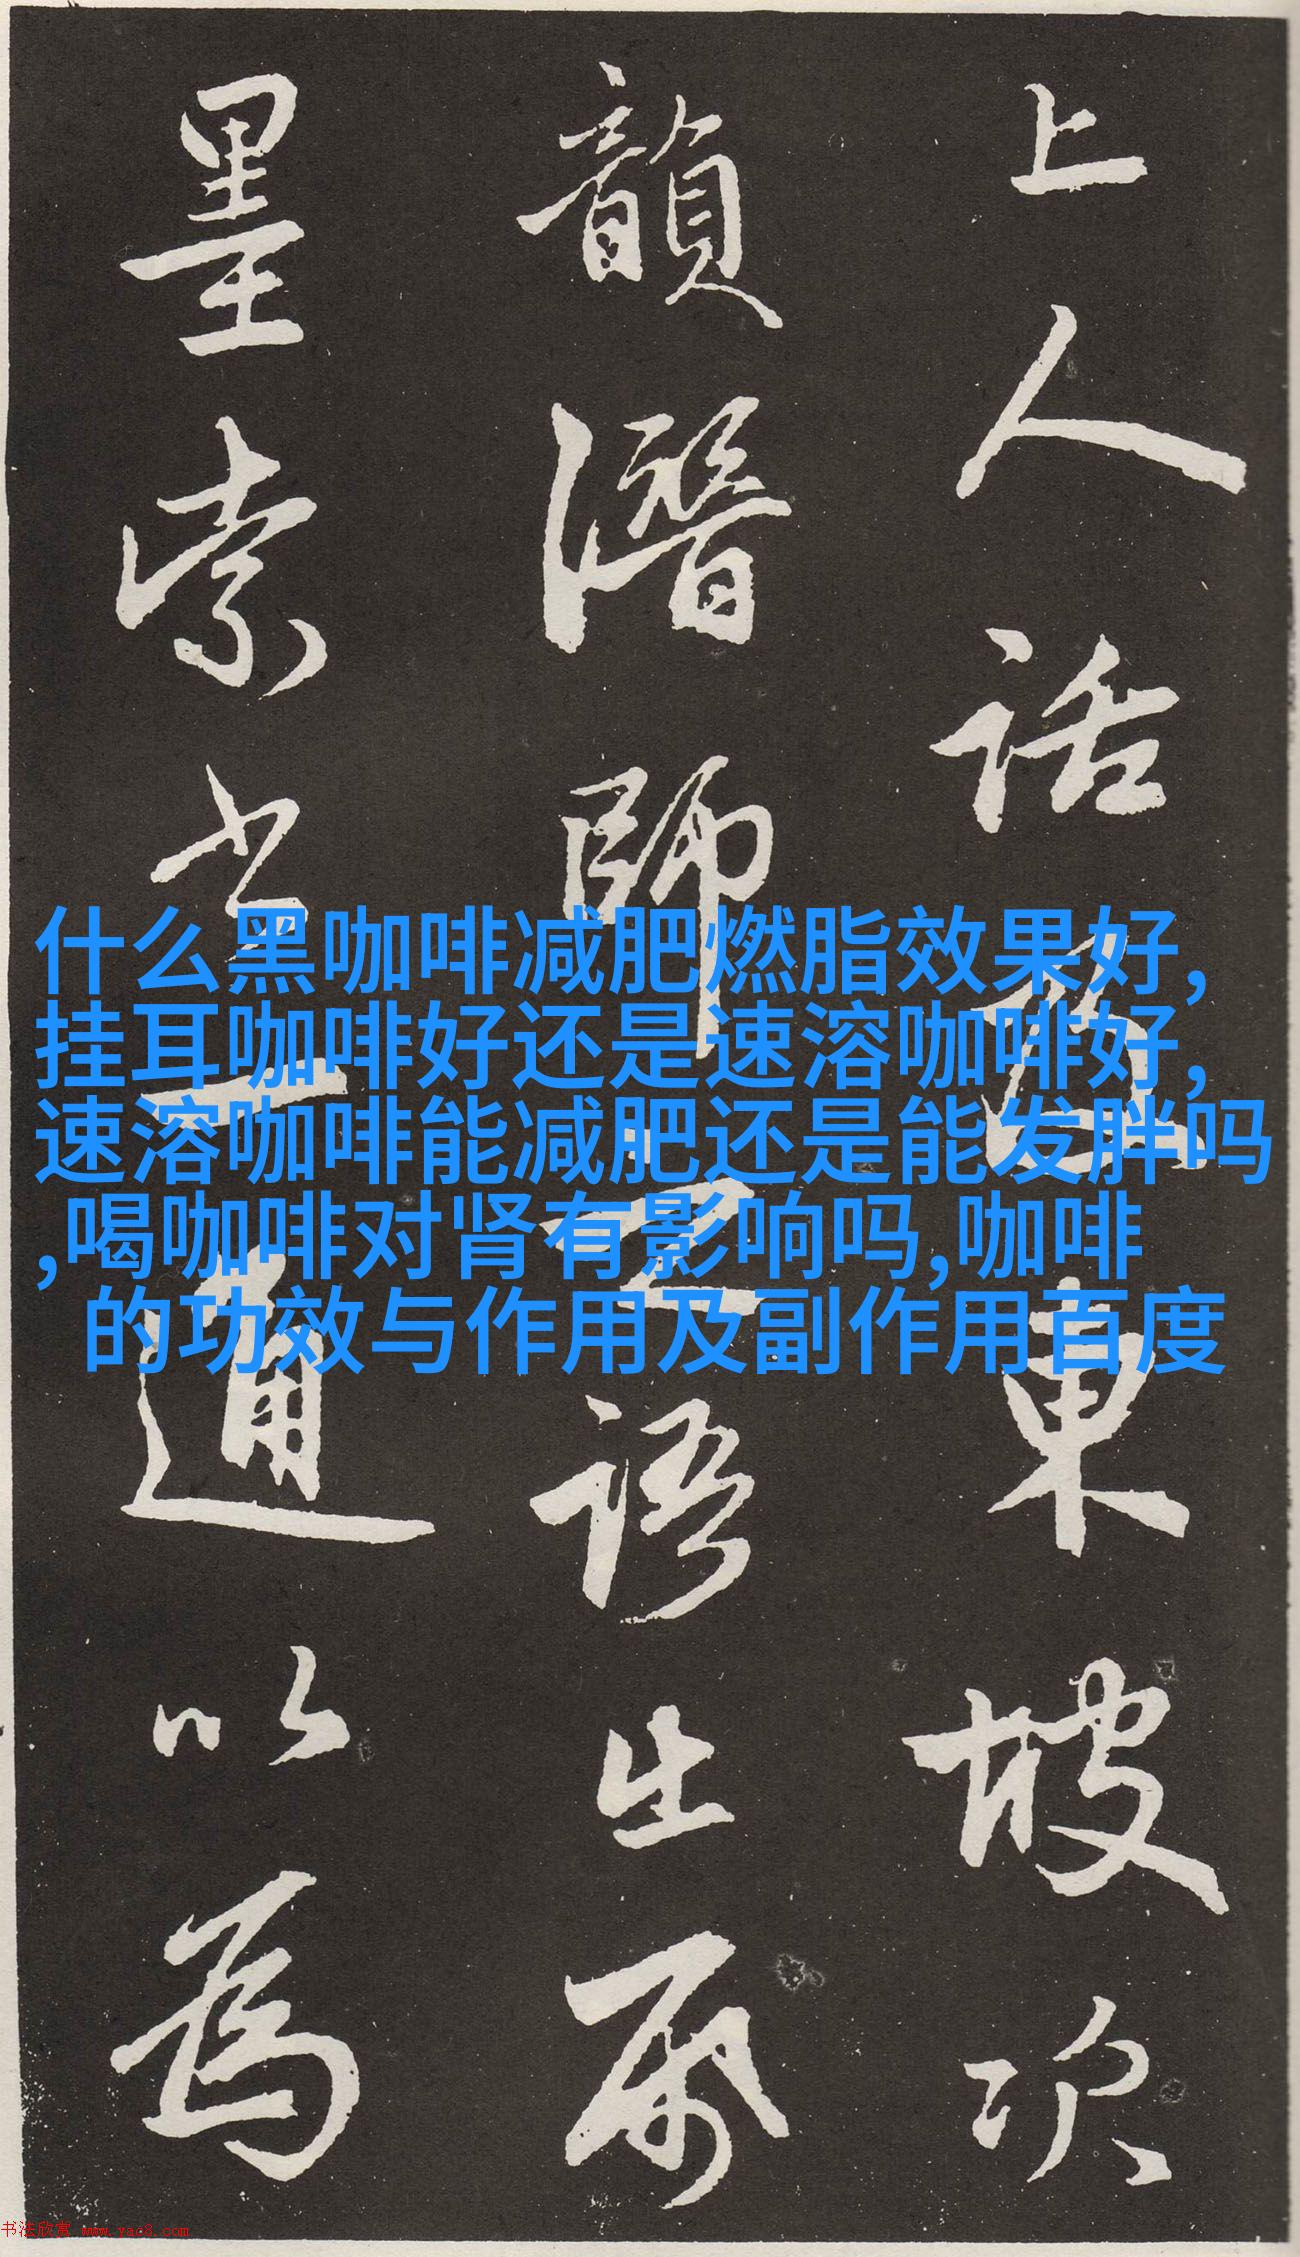 上人話及東坡次
韻潛師之語生前
墨索堂一通以為
什么黑咖啡减肥燃脂效果好,
挂耳咖啡好还是速溶咖啡好,
速溶咖啡能减肥还是能发胖吗
,喝咖啡对肾有影响吗,咖啡
的功效与作用及副作用百度
书法欣赏 www.yac8.com